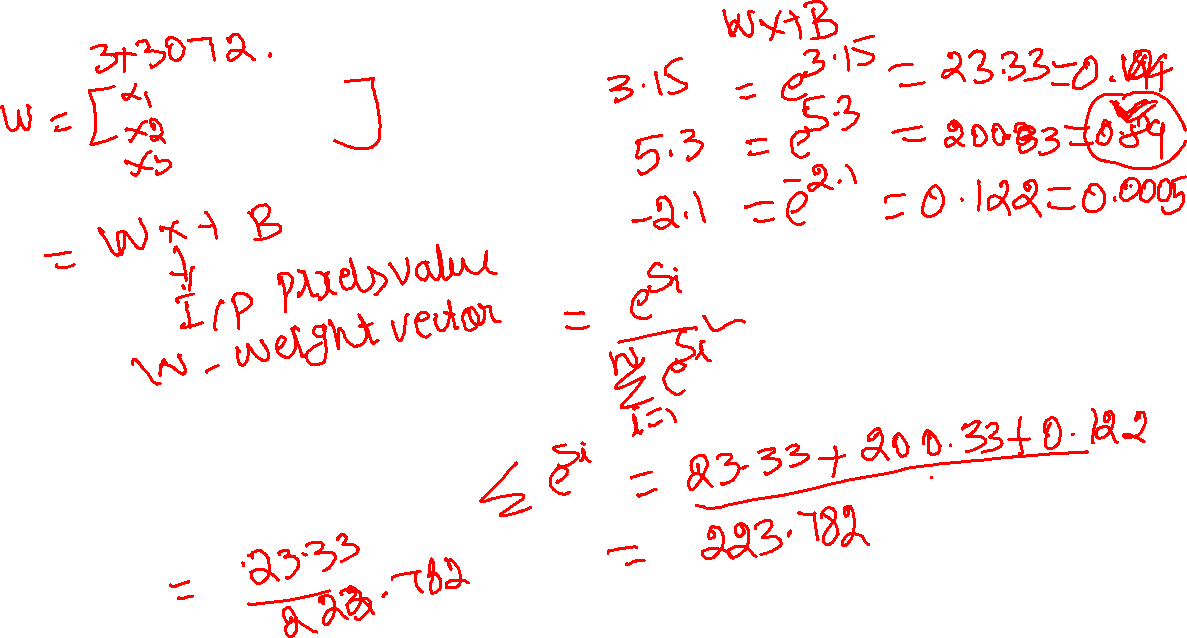 3+3072.
W = [ x1
x2
x3 ]
= Wx + B
I/P pixels value
W - weight vector
Wx+B
3.15 = e^3.15 = 23.33 =
5.3 = e^5.3 = 200.33 = 0.89
-2.1 = e^-2.1 = 0.122 = 0.0005
= e^Si / Σ e^Si
i=1
Σ e^Si = 23.33 + 200.33 + 0.122
= 223.782
= 23.33 / 223.782